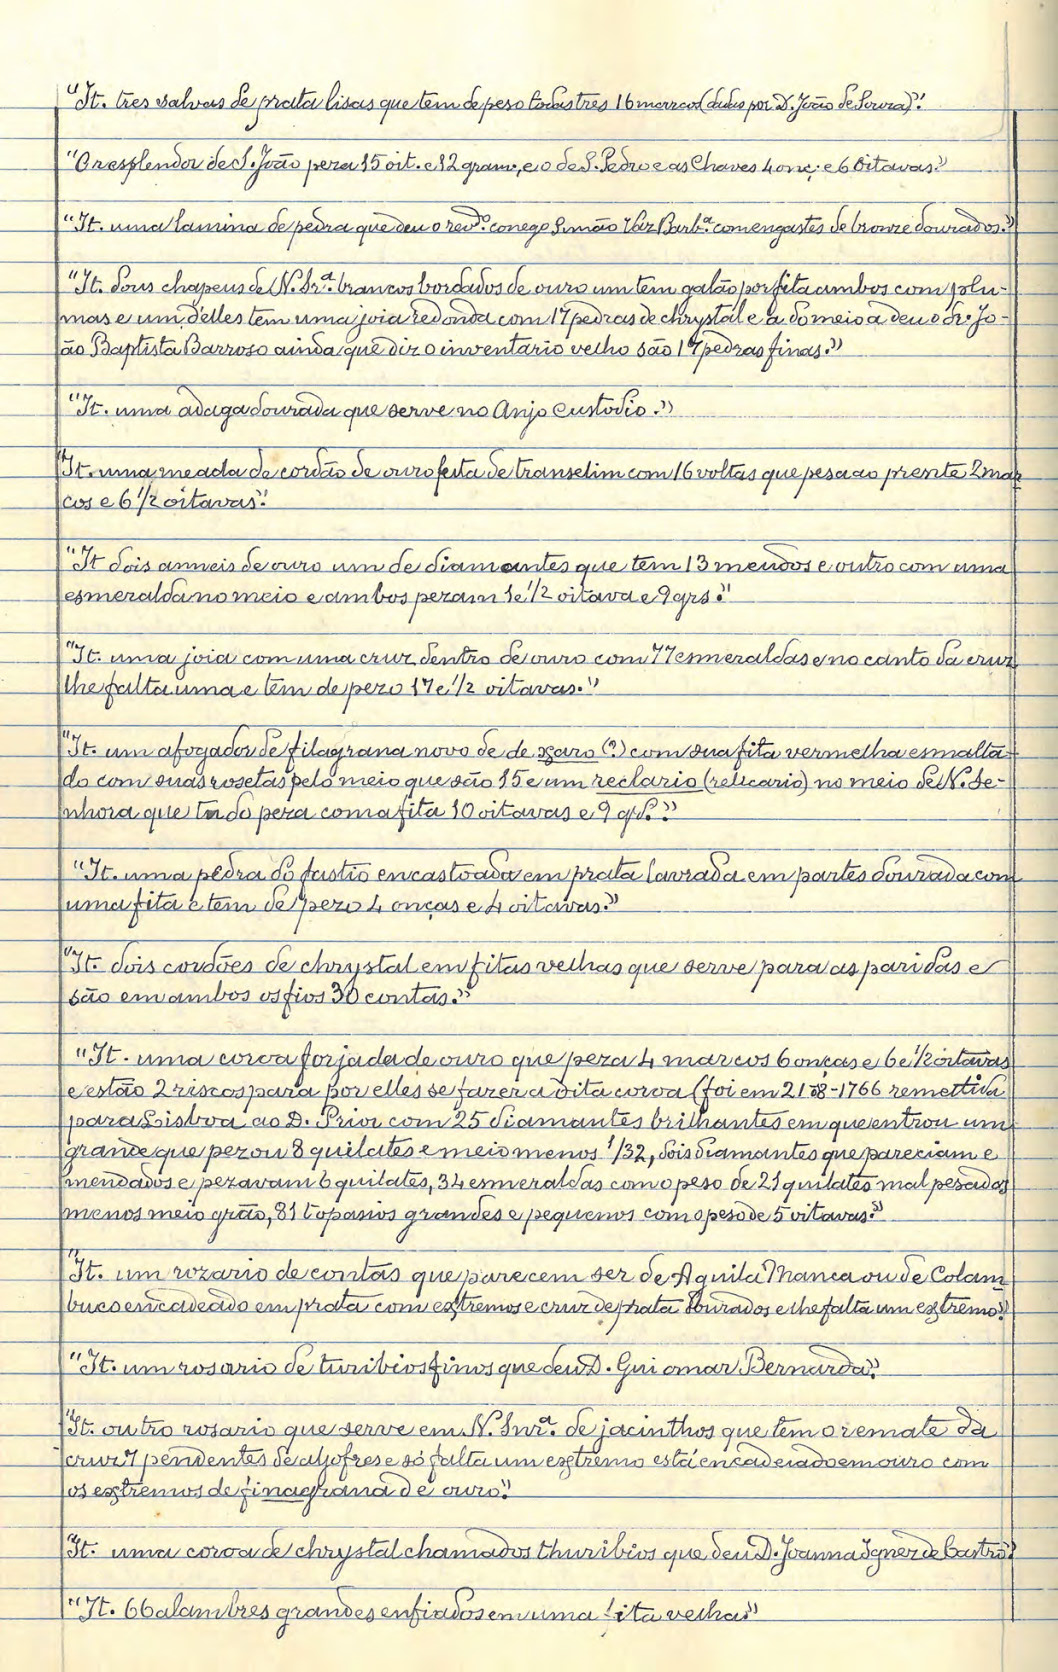 "It. tres salvas de prata lisas que tem de peso todas tres 16 marcos (dadas por D. João de Souza)".
"O resplendor de S. João peza 15 oit. e 12 gram., e o de S. Pedro e as Chaves 4 onç. e 6 oitavas."
"It. uma lamina de pedra que deu o revdº. conego Simão Barbª. com engastes de bronze dourados."
"It. dous chapeus de N. Srª. brancos bordados de ouro um tem galão por fita ambos com plu-
mas e um d'elles tem uma joia redonda com 17 pedras de chrystal e a do meio a deu o Sr. Jo-
ão Baptista Barroso ainda que diz o inventario velho são 17 pedras finas."
"It. uma adaga dourada que serve no Anjo Custodio."
"It. uma meada de cordão de ouro feita de transelim com 16 voltas que pesa ao prente 2 mar
cos e 6 1/2 oitavas".
"It dois anneis de ouro um de diamantes que tem 13 meudos e outro com uma
esmeralda no meio e ambos pezam 1 e 1/2 oitava e 9 grs."
"It. uma joia com uma cruz dentro de ouro com 77 esmeraldas e no canto da cruz
lhe falta uma e tem de pezo 17 e 1/2 oitavas."
"It. um afogador de filagrana novo de de xzaro (?) com sua fita vermelha esmalta-
do com suas rosetas pelo meio que são 15 e um reclario (relicario) no meio de N. Se-
nhora que tudo peza com a fita 10 oitavas e 9 grs."
"It. uma pedra do fastio encastoada em prata lavrada em partes dourada com
uma fita e tem de pezo 4 onças e 4 oitavas."
"It. dois cordões de chrystal em fitas velhas que serve para as paridas e
são em ambos os fios 30 contas."
"It. uma coroa forjada de ouro que peza 4 marcos 6 onças e 6 e 1/2 oitavas
e estão 2 riscos para por elles se fazer a dita coroa (foi em 21-8-1766 remettida
para Lisboa ao D. Prior com 25 diamantes brilhantes em que entrou um
grande que pezou 8 quilates e meio menos 1/32, dois diamantes que pareciam e
mendados e pezavam 6 quilates, 34 esmeraldas com o peso de 21 quilates mal pesados
menos meio grão, 81 topasios grandes e pequenos com o peso de 5 oitavas."
"It. um rozario de contas que parecem ser de Aguila Manca ou de Colam
buco encadeado em prata com extremos e cruz de prata dourados e lhe falta um extremo."
"It. um rosario de turibios finos que deu D. Guiomar Bernarda".
"It. outro rosario que serve em N. Snrª. de jacinthos que tem o remate da
cruz 7 pendentes de aljofres e só falta um extremo está encadeado em ouro com
os extremos de finagrana de ouro".
"It. uma coroa de chrystal chamados thuribios que deu D. Joanna Ignez de Castro".
"It. 66 alambres grandes enfiados em uma fita velha"